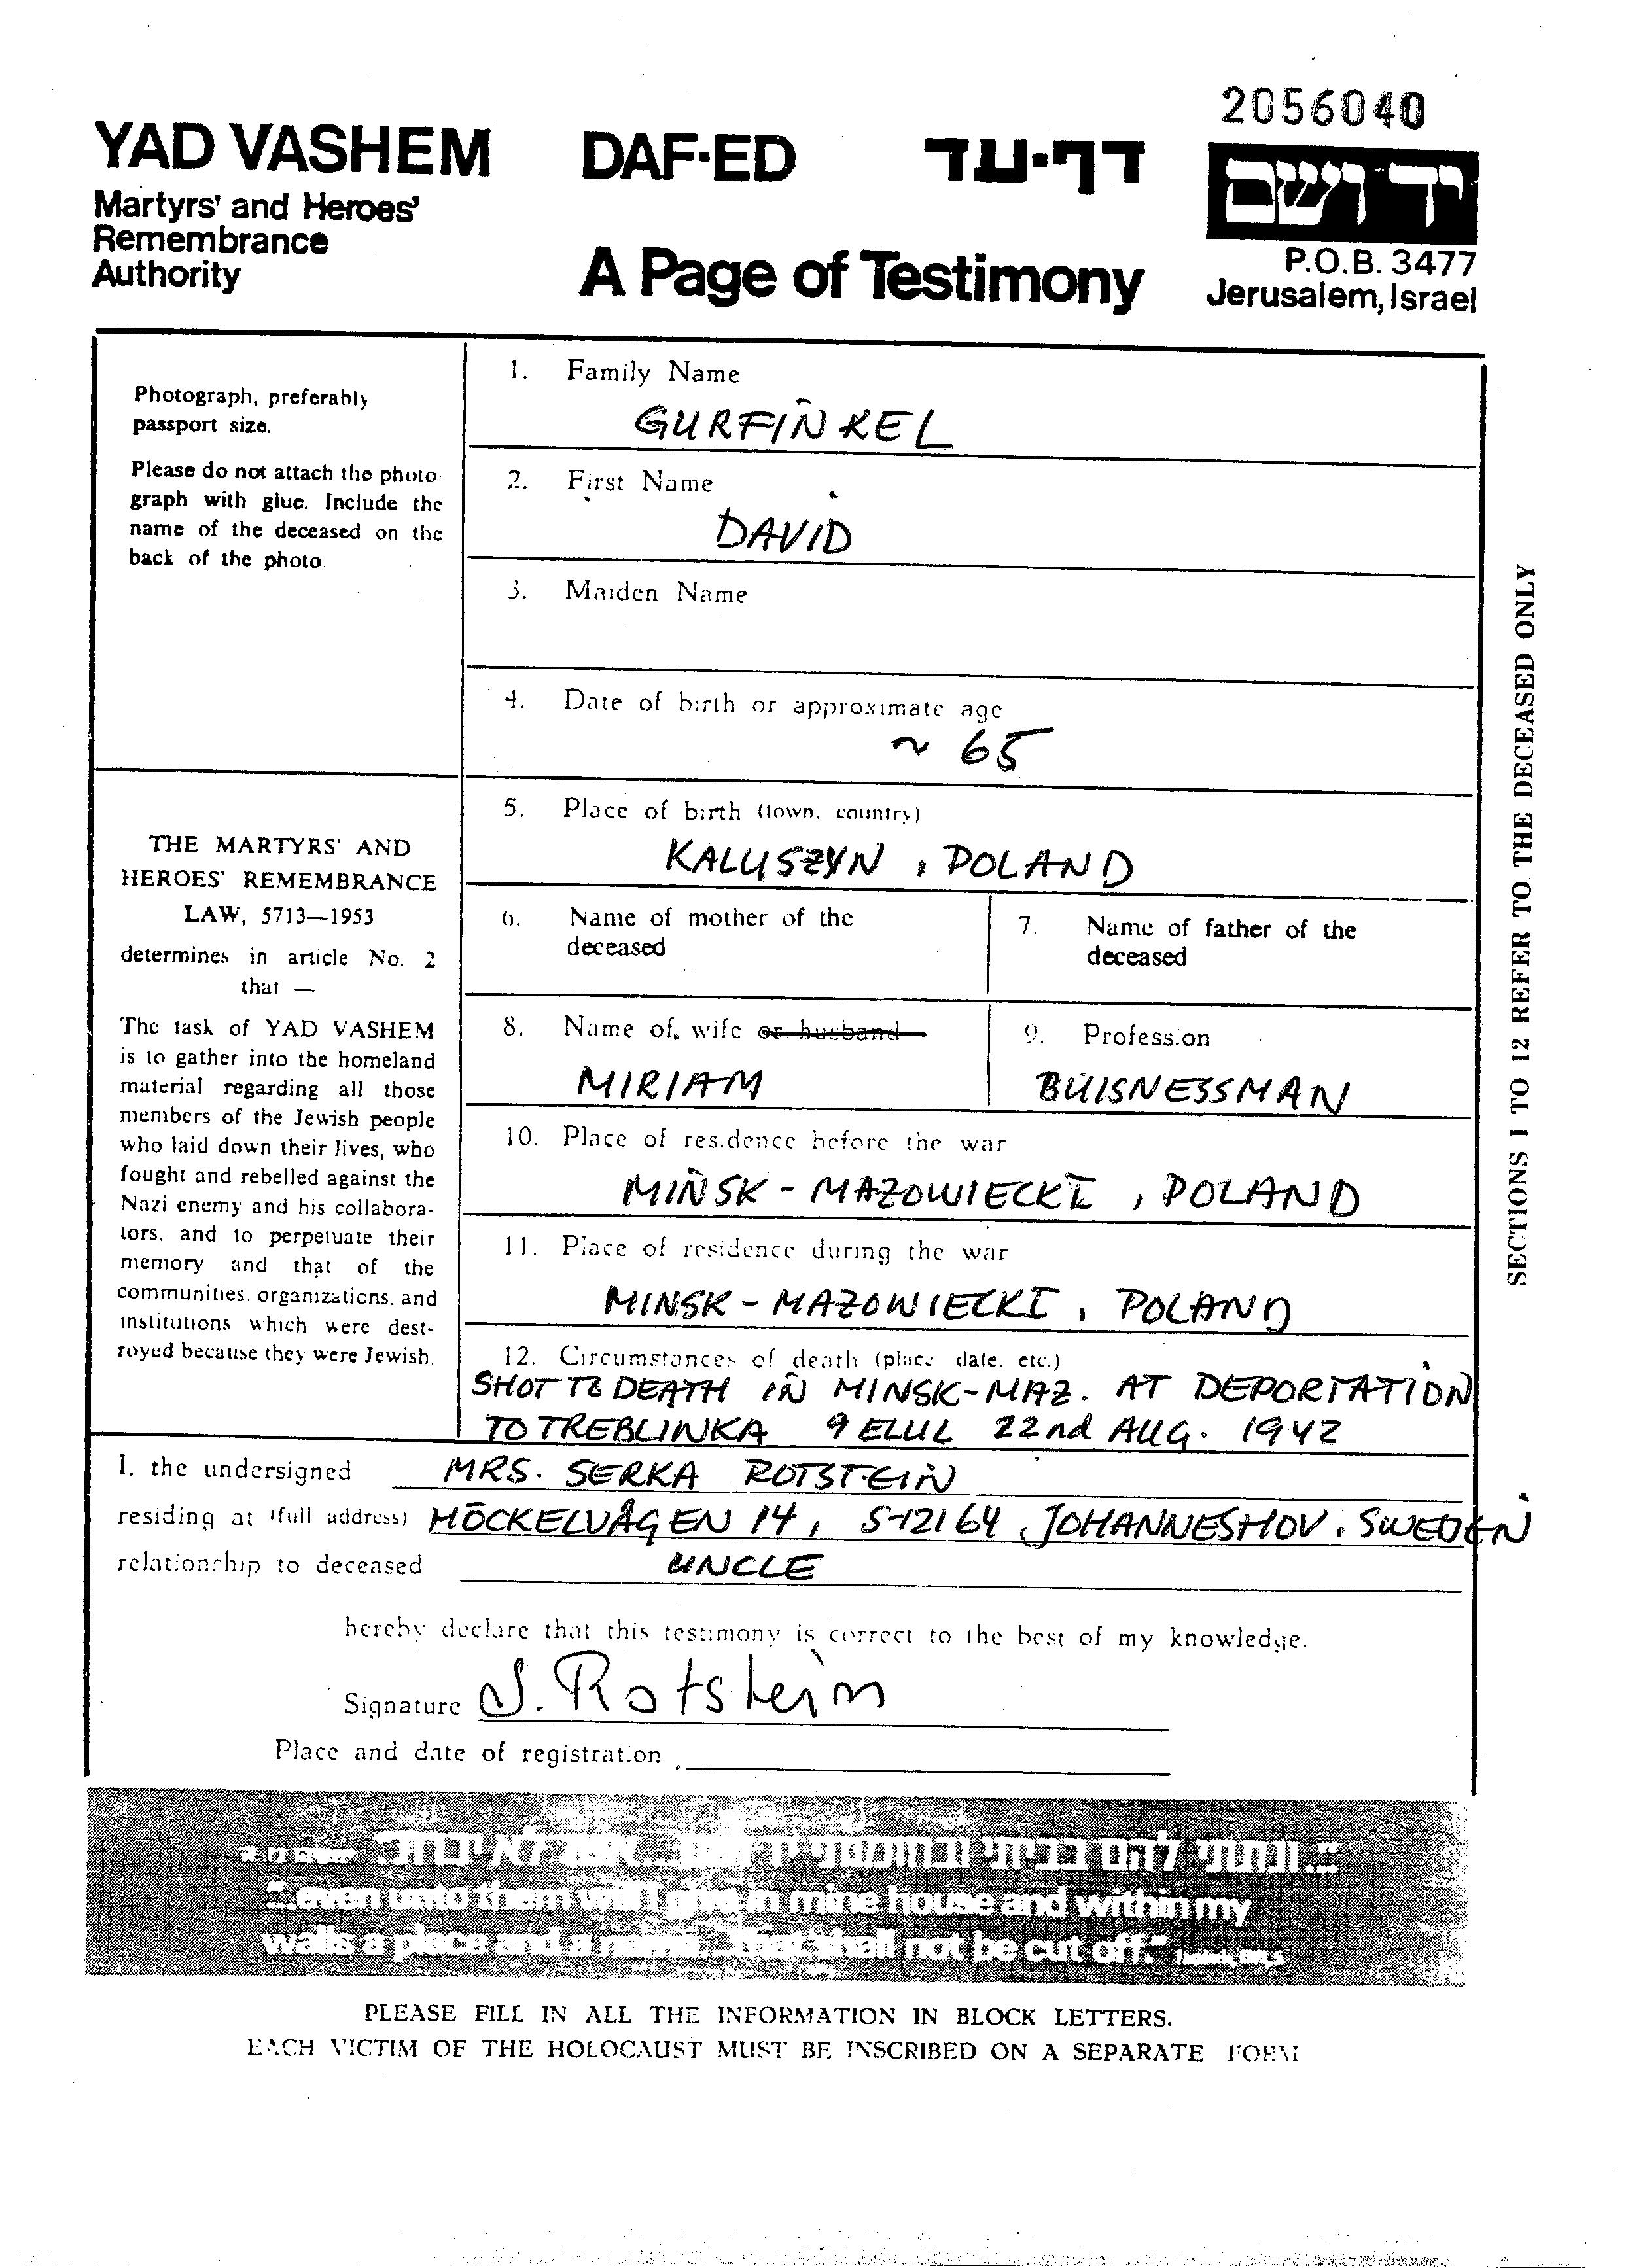 2056040
YAD VASHEM
DAF-ED
דף-עד
יד ושם
Martyrs' and Heroes'
Remembrance
Authority
A Page of Testimony
P.O.B. 3477
Jerusalem, Israel
Photograph, preferably
passport size.
Please do not attach the photo
graph with glue. Include the
name of the deceased on the
back of the photo.
1. Family Name
GURFINKEL
2. First Name
DAVID
3. Maiden Name
4. Date of birth or approximate age
~ 65
THE MARTYRS' AND
HEROES' REMEMBRANCE
LAW, 5713—1953
determines in article No. 2
that —
The task of YAD VASHEM
is to gather into the homeland
material regarding all those
members of the Jewish people
who laid down their lives, who
fought and rebelled against the
Nazi enemy and his collabora-
tors, and to perpetuate their
memory and that of the
communities, organizations, and
institutions which were dest-
royed because they were Jewish.
5. Place of birth (town, country)
KALUSZYN, POLAND
6. Name of mother of the
deceased
7. Name of father of the
deceased
8. Name of wife or husband
MIRIAM
9. Profession
BUISNESSMAN
10. Place of residence before the war
MIŃSK - MAZOWIECKI, POLAND
11. Place of residence during the war
MINSK - MAZOWIECKI, POLAND
12. Circumstances of death (place date, etc.)
SHOT TO DEATH IN MINSK-MAZ. AT DEPORTATION
TO TREBLINKA 9 ELUL 22nd AUG. 1942
SECTIONS 1 TO 12 REFER TO THE DECEASED ONLY
I, the undersigned MRS. SERKA ROTSTEIN
residing at (full address) HÖCKELVÄGEN 14, S-12164 JOHANNESHOV, SWEDEN
relationship to deceased UNCLE
hereby declare that this testimony is correct to the best of my knowledge.
Signature S. Rotstein
Place and date of registration
"...ונתתי להם בביתי ובחומותי יד ושם... אשר לא יכרת"
"...even unto them will I give in mine house and within my
walls a place and a name...that shall not be cut off."
PLEASE FILL IN ALL THE INFORMATION IN BLOCK LETTERS.
EACH VICTIM OF THE HOLOCAUST MUST BE INSCRIBED ON A SEPARATE FORM